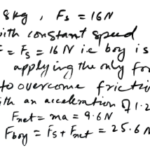 8kg, Fs = 16N
with constant speed
F = Fs = 16 N ie boy is
applying the only for
to overcome frictio
with an acceleration of 1.2
Fnet = ma = 9.6N
Fboy = Fs + Fnet = 25.6 N